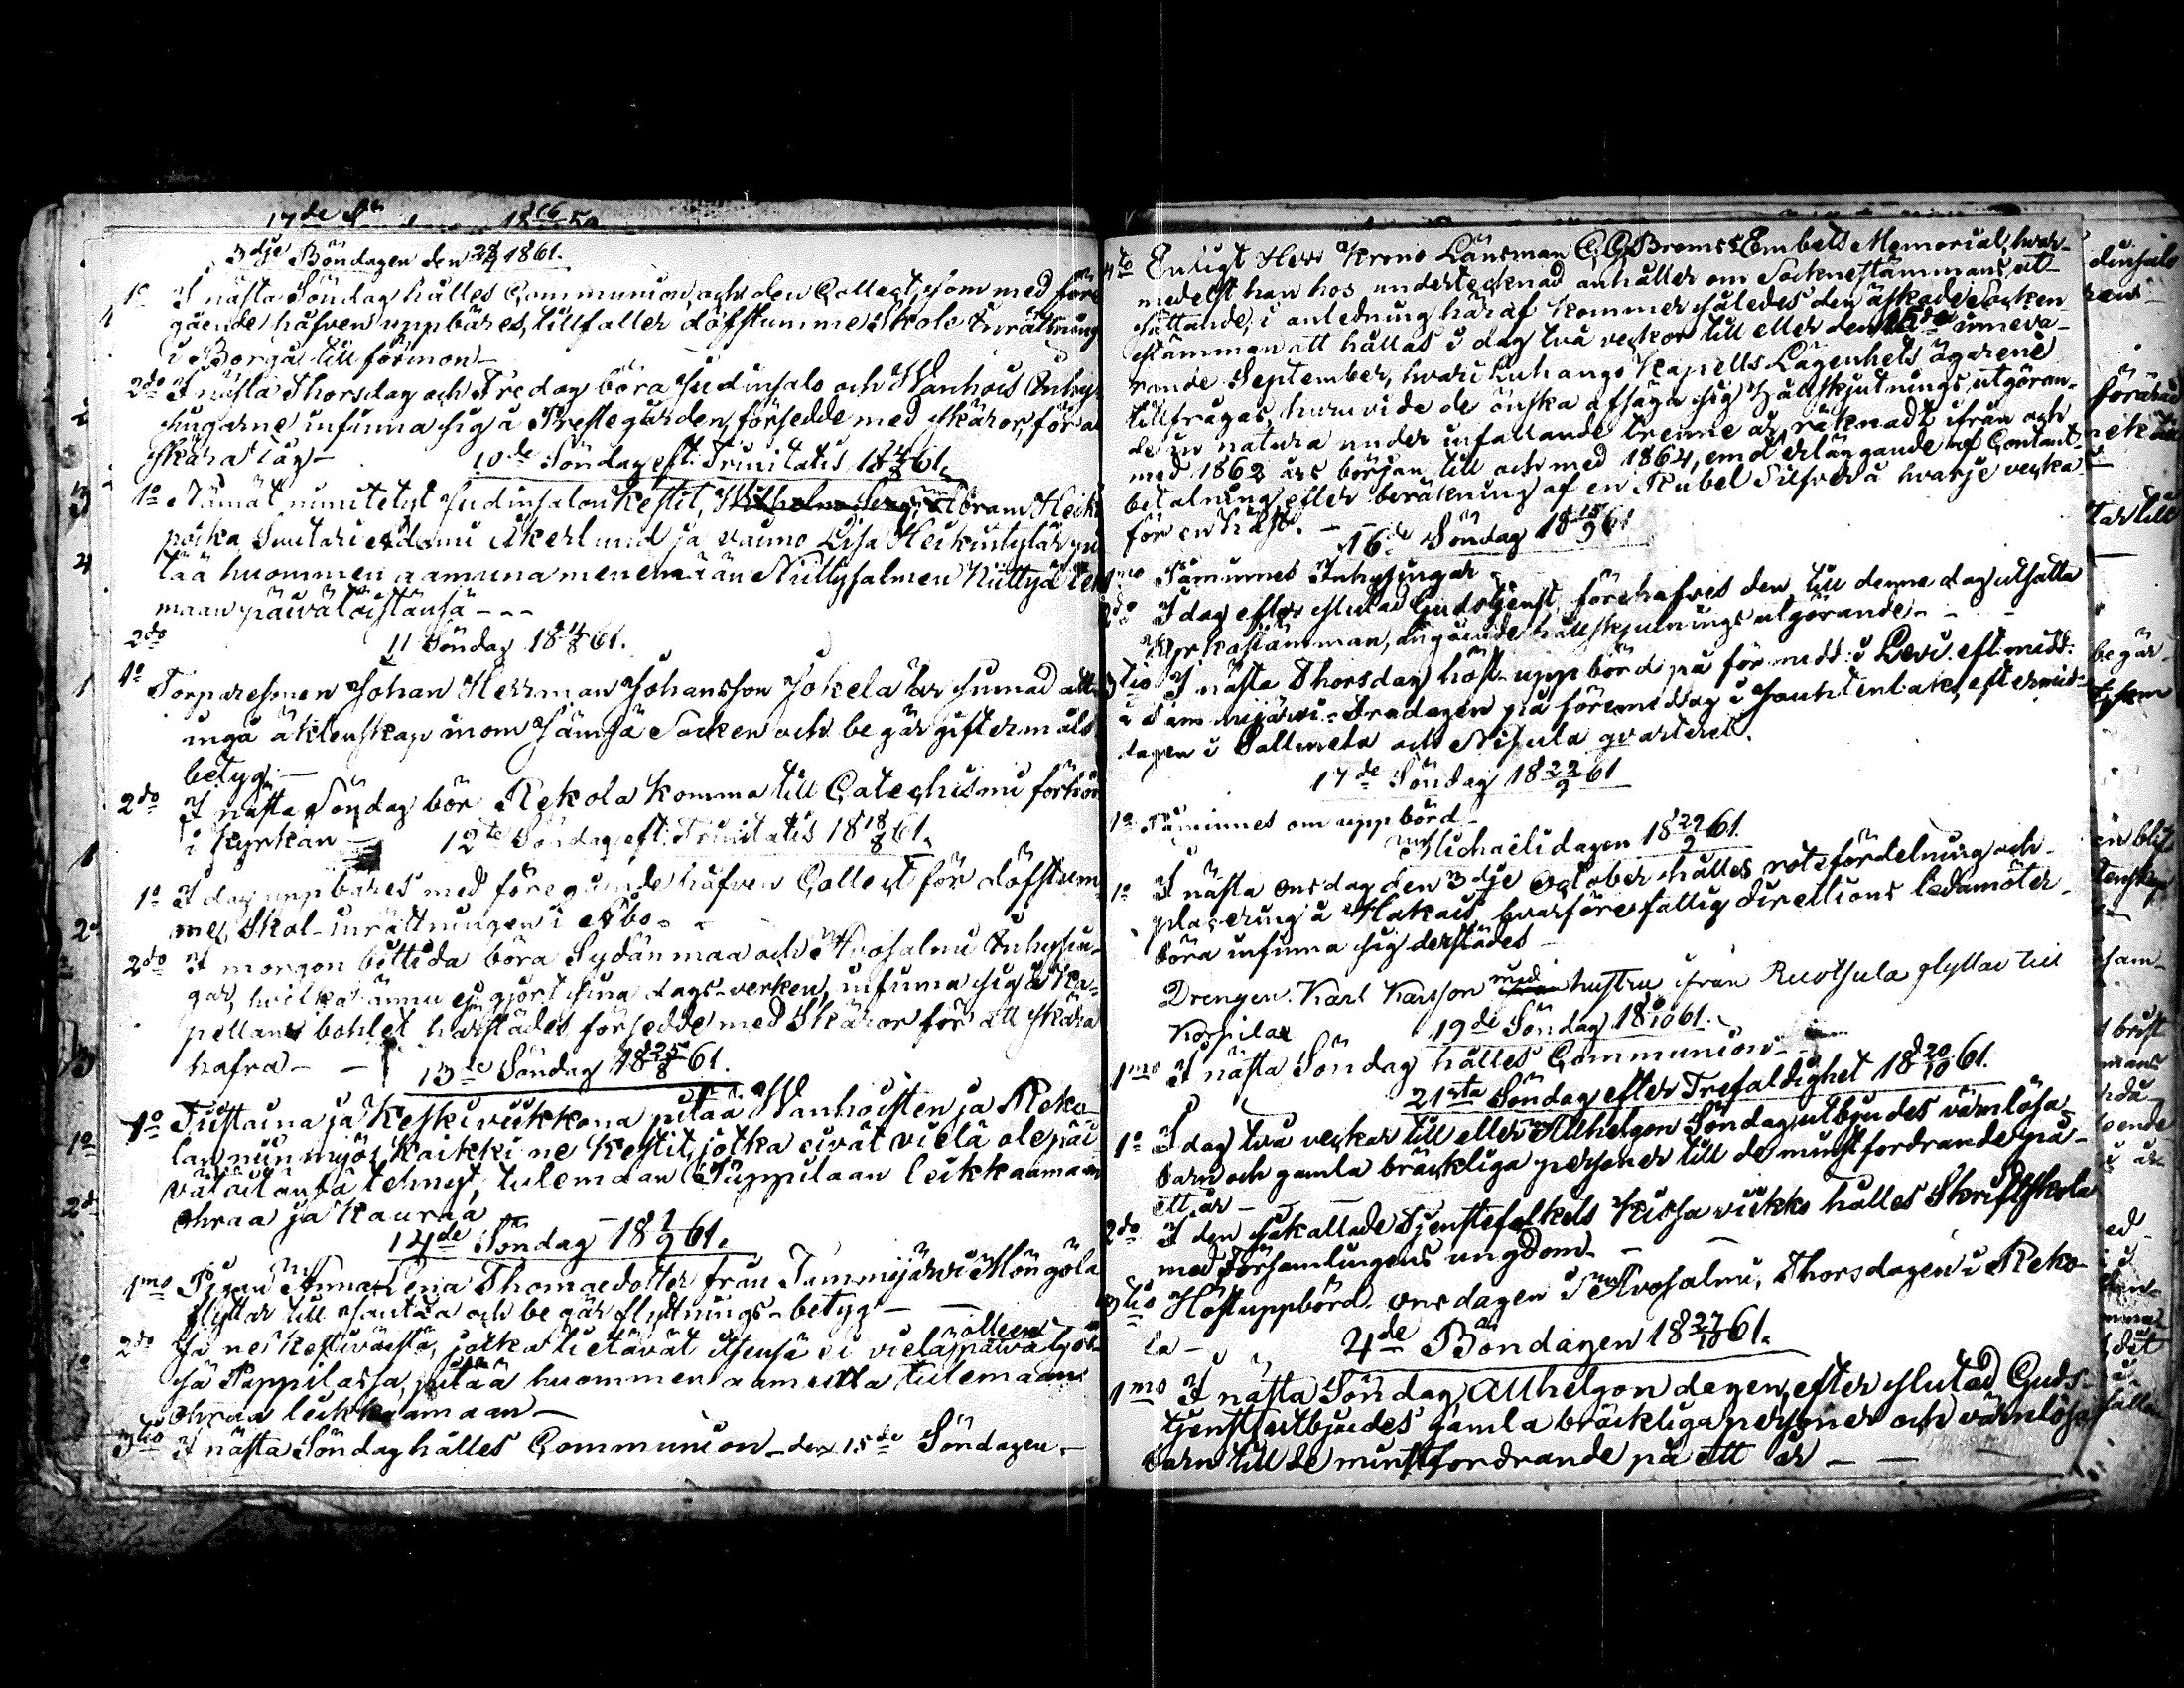 3dje Böndagen den 28/7 1861.
1o I nästa Söndag hålles Communion, och den Collect, som med före
gående håfven uppbäres, tillfaller döfstumme Skole Inrättning
i Borgå till förmon —
2do I nästa Thorsdag och Fredag böra Judinsalo och Wanhois Inhy
singarne infinna sig å Prestegården, försedde med skäror, för at
skära råg —
10de Söndag eft. Trinitatis 18 4/8 61.
1o Nämät nimitetyt Judinsalon Kestit, Heik
poika ja vaimo Lisa Heikintytär pi
tää huomen aamuna menemään Nüttysalmen Nüttyä
maan päivätöistänsä - - -
2do
11 Söndag 18 11/8 61.
1o Torparesonen Johan Herrman Johansson Jokela är sinnad att
ingå äktenskap inom Jämsä Socken och begär giftermåls
betyg. —
2do I nästa Söndag bör Rekola komma till Catechismi förhör
i Kyrkan —
12te Söndag eft. Trinitatis 18 18/8 61.
1o I dag uppbäres med föregående håfven Collect för döfstum-
me, Skol-inrättningen i Åbo -
2do I morgon bittida böra Sydänmaa och Avosalmi Inhysin-
gar, hvilka ännu ej gjort sina dags-verken, infinna sig å Ka-
pellans bohlet härstädes försedde med Skäror för att skära
hafra — —
13de Söndag 18 25/8 61.
1o Tiistaina ja Keskiviikkona pitää Wanhoisten ja Reko-
lan niin myös Kaikki ne Kestit, jotka eivät vielä ole päi
vätöitänsä tehnyt, tuleman Pappilaan leikkaamaan
ohraa ja Kauraa
14de Söndag 18 1/9 61.
1mo Pigan Anna Lena Thomaedotter från Tammijärvi Möngölä
flyttar till Jautsa och begär flyttnings-betyg — —
2do Ja ne Kestiväestä, jotka tietävät itsensä ei vielä olleen päivätyös-
sä Pappilassa, pitää huomen aamulla tulemaan
ohraa leikkaamaan —
3tio I nästa Söndag hålles Communion — den 15de Söndagen —
4to Enligt Herr Krono Länsman C. G. Brems's Embets Memorial, hvar-
medelst han hos undertecknad anhåller om Sockenstämmans ut-
sättande, i anledning häraf kommer således den äskade Socken
stämman att hållas i dag två veckor till eller den 15de inneva-
rande September, hvari Luhango Kapells Lägenhets ägarene
tillfrågas, huruvida de önska afsäga sig Hållskjutnings utgöran-
de in natura under infallande trenne år, räknadt ifrån och
med 1862 års början till och med 1864, emot erläggande af Contant-
betalning efter beräkning af en Rubel Silfver å hvarje vecka
för en häst. — —
16de Söndag 18 15/9 61
1mo Påminnes Inhysingar -
2do I dag efter slutad Gudstjenst, förehafves den till denna dag utsatta
Kyrkostämman, angående hållskjutnings utgörande — - -
3tio I nästa Thorsdag höst-uppbörd på förmidd: i Levi. eft.midd:
i Tammijärvi. Fredagen på föremiddag i Hauhtenlaks, eftermid-
dagen i Pallmela och Nisula qvarteret.
17de Söndag 18 22/9 61
1o Påminnes om uppbörd —
Michaëlidagen 18 29/9 61.
1o I nästa onsdag den 3dje October hålles rotefördelning och
placering å Hakais, hvarföre fattig direktions ledamöter
böra infinna sig derstädes —
Drengen Karl Karsson med hustru ifrån Ruotsula flyttar till
Korpilax
19de Söndag 18 6/10 61.
1mo I nästa Söndag hålles Communion —
21sta Söndag efter Trefaldighet 18 20/10 61.
1o I dag två veckor till eller Allhelgon Söndag utbjudes värnlösa
barn och gamla bräckliga personer till de minst fordrande på
ett år — —
2do I den så kallade Tjenstefolkets Kiisa viikko hålles Skriftskola
med Församlingens ungdom — —
3tio Höstuppbörd. onsdagen i Avosalmi, Thorsdagen i Reko-
la —
4de Böndagen 18 27/10 61.
1mo I nästa Söndag, Allhelgon dagen, efter slutad Guds-
tjenst, utbjudes gamla bräckliga personer och värnlösa
barn till de minst fordrande på ett år — —